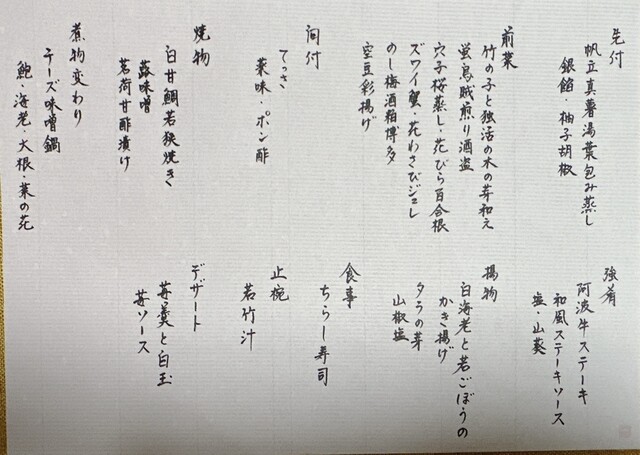 先付
帆立真薯湯葉包み蒸し
銀餡・柚子胡椒
前菜
竹の子と独活の木の芽和え
蛍烏賊煎り酒盗
穴子桜蒸し・花びら百合根
ズワイ蟹・花わさびジュレ
のし梅酒粕博多
空豆彩揚げ
向付
てっさ
薬味・ポン酢
焼物
白甘鯛若狭焼き
蕗味噌
茗荷甘酢漬け
煮物変わり
チーズ味噌鍋
鮑・海老・大根・菜の花
強肴
阿波牛ステーキ
和風ステーキソース
塩・山葵
揚物
白海老と若ごぼうの
かき揚げ
タラの芽
山椒塩
食事
ちらし寿司
止椀
若竹汁
デザート
苺羹と白玉
苺ソース